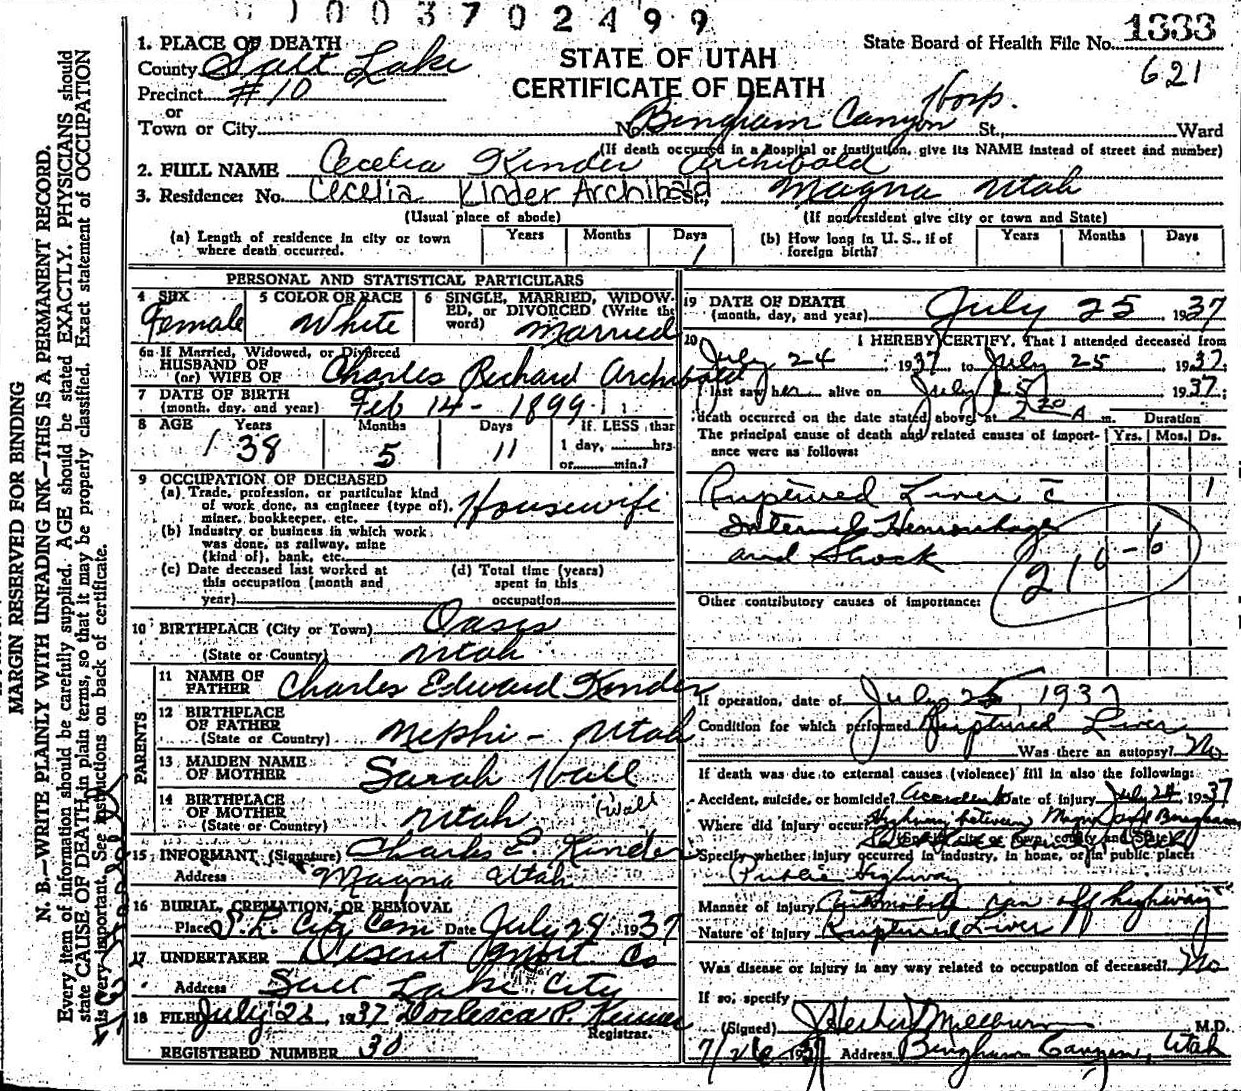 1003702499
1333
State Board of Health File No.
621
STATE OF UTAH
CERTIFICATE OF DEATH
1. PLACE OF DEATH
County Salt Lake
Precinct #10
or
Town or City No. Bingham Canyon Hosp. St., Ward
(If death occurred in a hospital or institution, give its NAME instead of street and number)
2. FULL NAME Cecelia Kinder Archibald
3. Residence: No. Cecelia Kinder Archibald St., Magna Utah
(Usual place of abode) (If non-resident give city or town and State)
(a) Length of residence in city or town where death occurred. Years Months Days 1
(b) How long in U. S., if of foreign birth? Years Months Days
PERSONAL AND STATISTICAL PARTICULARS
4 SEX Female
5 COLOR OR RACE White
6 SINGLE, MARRIED, WIDOWED, or DIVORCED (Write the word) Married
6a If Married, Widowed, or Divorced
HUSBAND OF
(or) WIFE OF Charles Richard Archibald
7 DATE OF BIRTH
(month, day, and year) Feb 14 - 1899
8 AGE Years 38 Months 5 Days 11 If LESS than
1 day, hrs.
or min.?
9 OCCUPATION OF DECEASED
(a) Trade, profession, or particular kind
of work done, as engineer (type of),
miner, bookkeeper, etc. Housewife
(b) Industry or business in which work
was done, as railway, mine
(kind of), bank, etc.
(c) Date deceased last worked at
this occupation (month and
year)
(d) Total time (years)
spent in this
occupation
10 BIRTHPLACE (City or Town) Oasis
(State or Country) Utah
PARENTS
11 NAME OF
FATHER Charles Edward Kinder
12 BIRTHPLACE
OF FATHER
(State or Country) Nephi - Utah
13 MAIDEN NAME
OF MOTHER Sarah Hall
14 BIRTHPLACE
OF MOTHER
(State or Country) Utah (Wall
15 INFORMANT (Signature) Charles E Kinder
Address Magna Utah
16 BURIAL, CREMATION, OR REMOVAL
Place S. L. City Cem Date July 28, 1937
17 UNDERTAKER Deseret Mort Co
Address Salt Lake City
18 FILED July 28, 1937
Registrar.
REGISTERED NUMBER 30
19 DATE OF DEATH
(month, day, and year) July 25 1937
20 I HEREBY CERTIFY, That I attended deceased from
July 24 1937 to July 25 1937
I last saw her alive on July 25 1937;
death occurred on the date stated above, at 2 20 A m. Duration
The principal cause of death and related causes of importance were as follows: Yrs. Mos. Ds.
Ruptured Liver c̄ 1
Internal Hemorrhage
and Shock
210-6
Other contributory causes of importance:
If operation, date of July 25 1937
Condition for which performed Ruptured Liver
Was there an autopsy? No
If death was due to external causes (violence) fill in also the following:
Accident, suicide, or homicide? Accident Date of injury July 24 1937
Where did injury occur? Highway between Magna and Bingham
(Specify city or town, county and State)
Specify whether injury occurred in industry, in home, or in public place:
Public Highway
Manner of injury Automobile ran off highway
Nature of injury Ruptured Liver
Was disease or injury in any way related to occupation of deceased? No
If so, specify
(Signed) M.D.
7/26 1937 Address Bingham Canyon, Utah
MARGIN RESERVED FOR BINDING
N. B.—WRITE PLAINLY WITH UNFADING INK—THIS IS A PERMANENT RECORD.
Every item of information should be carefully supplied. AGE should be stated EXACTLY. PHYSICIANS should
state CAUSE OF DEATH in plain terms, so that it may be properly classified. Exact statement of OCCUPATION
is very important. See instructions on back of certificate.